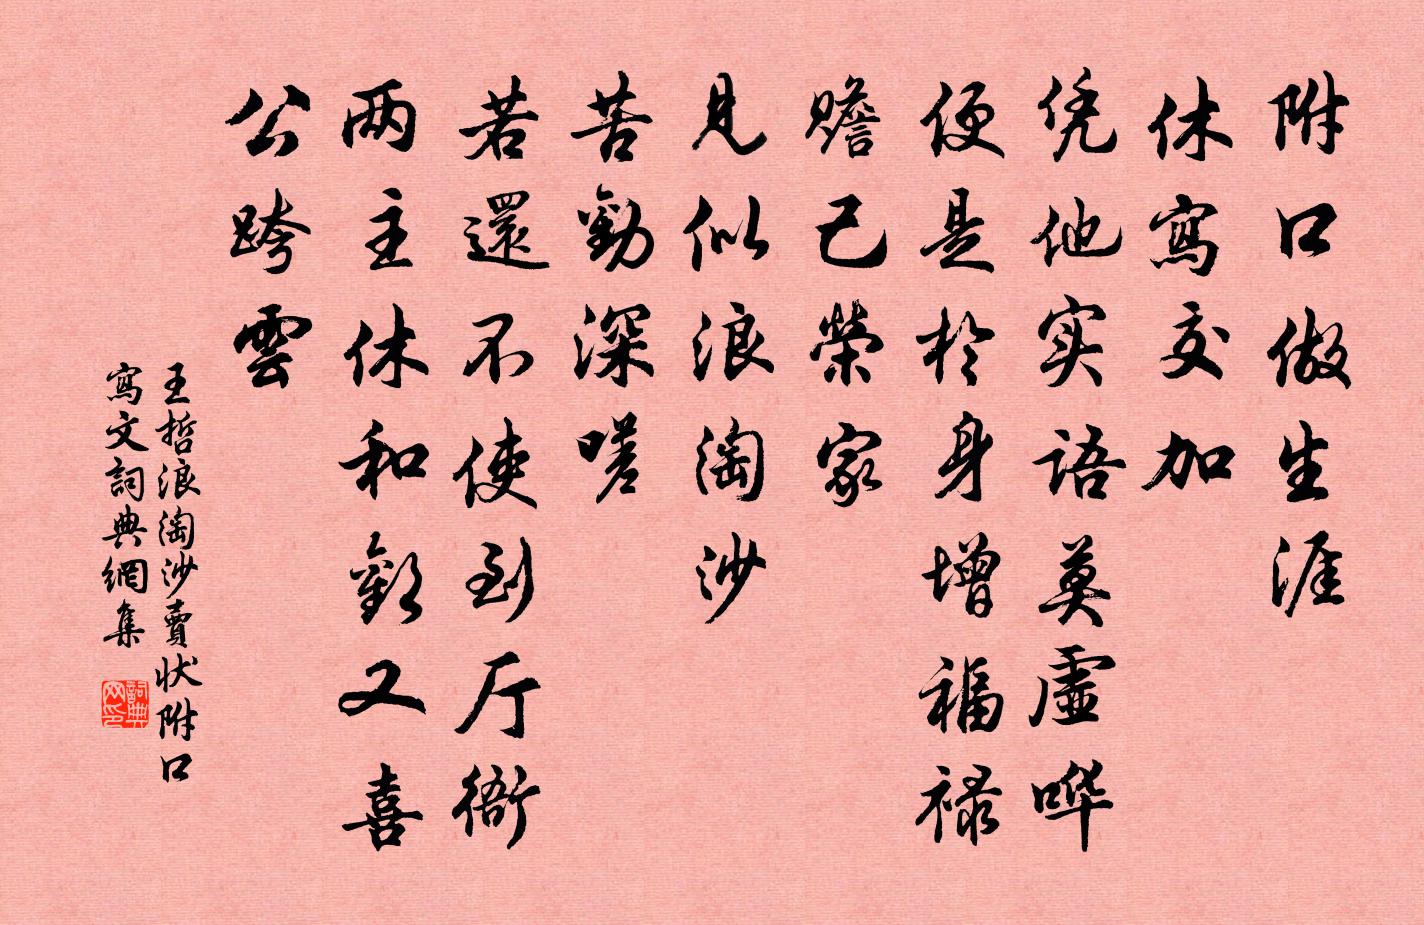 附口做生涯
休寫交加
凭他实语莫虛哗
便是於身增福禄
赡己榮家
見似浪淘沙
苦勸深嗟
若還不使到厅衙
两主休和歡又喜
公跨雲
王哲浪淘沙賣状附口
寫文詞典網集
詞典网印